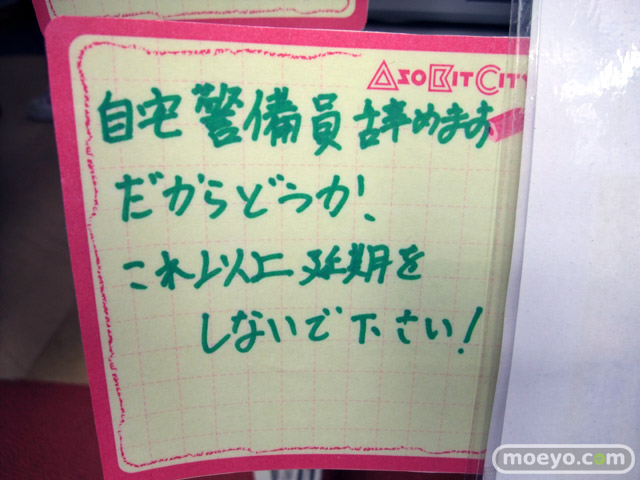 AsoBitCit
自宅警備員辞めます
だからどうか!
これ以上延期を
しないで下さい!
moeyo.com